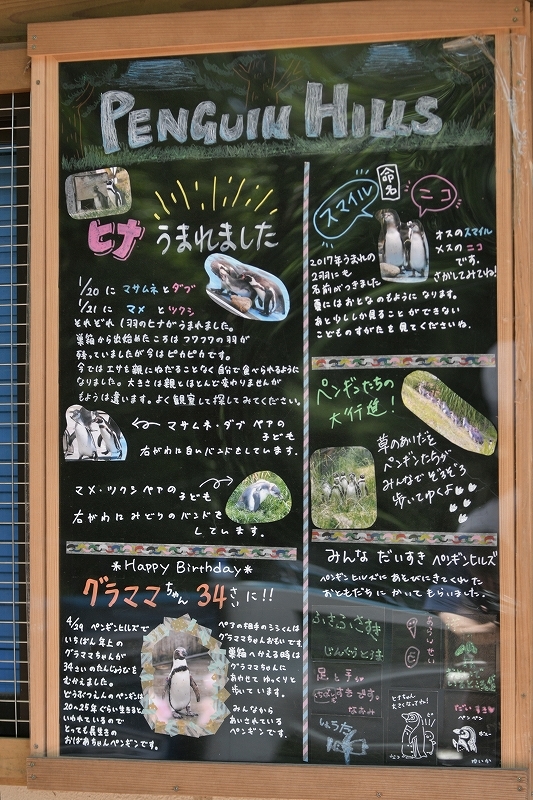 PENGUIN HILLS
ヒナ うまれました
1/20 に マサムネとダブ
1/21 に マメ とツクシ
それぞれ1羽のヒナがうまれました。
巣箱から出始めたころはフワフワの羽が
残っていましたが今はピカピカです。
今ではエサも親にねだることなく自分で食べられるように
なりました。大きさは親とほとんど変わりませんが
もようは違います。よく観察して探してみてください。
マサムネ・ダブ ペアの
子ども
右がわに白いバンドをしています。
マメ・ツクシペアの子ども
右がわにみどりのバンドを
しています。
*Happy Birthday*
グラママちゃん 34さいに!!
4/29 ペンギンヒルズで
いちばん年上の
グラママちゃんが
34さいのたんじょうびを
むかえました。
どうぶつえんのペンギンは
20~25年ぐらい生きると
いわれているので
とっても長生きの
おばあちゃんペンギンです。
ペアの相手のシラくんは
グラママちゃんおもいです。
巣箱へかえる時は
グラママちゃんに
あわせて ゆっくりと
歩いています。
みんなから
あいされている
ペンギンです。
命名
スマイル
ニコ
オスのスマイル
メスのニコ
です。
さがしてみてね!
2017年うまれの
2羽にも
名前がつきました
夏にはおとなのもようになります。
あと少ししか見ることができない
こどものすがたを見てくださいね。
ペンギンたちの
大行進!
草のあいだを
ペンギンたちが
みんなでぞろぞろ
歩いてゆくよ
みんな だいすき ペンギンヒルズ
ペンギンヒルズにあそびにきてくれた
おともだちに かいてもらいました。
足と手が
すきです。
ヒナちゃん
大きくなってね!
だいすき
ペンペン